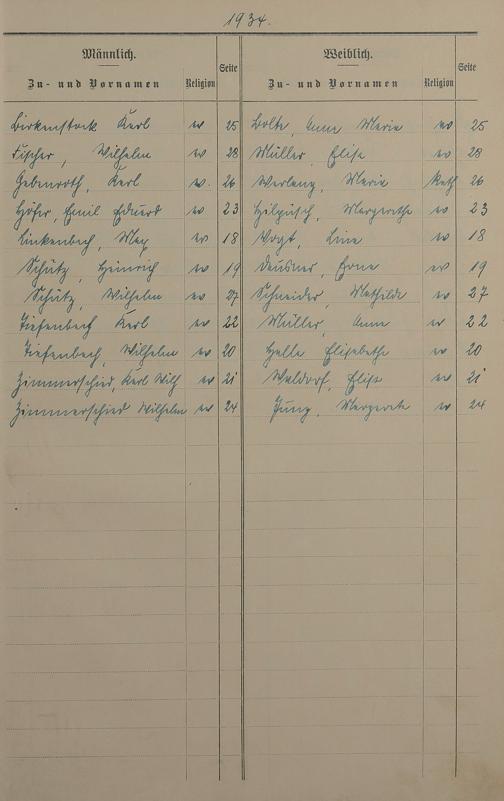 1934.
Männlich. Weiblich.
Zu- und Vornamen Religion Seite Zu- und Vornamen Religion Seite
Birkenstock Karl ev 25 Bolte, Anna Maria ev 25
Fischer, Wilhelm ev 28 Müller, Elise ev 28
Gebenroth, Karl ev. 26 Maria Kath 26
Höfer, Emil Eduard ev 23 Hilgisch, Margarethe ev 23
Linkenbach, Max ev 18 Vogt, Lina ev 18
Schütz, Heinrich ev 19 Deusner, Erna ev 19
Schütz, Wilhelm ev 27 Schneider, Mathilde ev 27
Tiefenbach Karl ev 22 Müller, Anna ev 22
Tiefenbach, Wilhelm ev 20 Halle Elisabetha ev 20
Zimmerschied, Karl Wilh ev 21 Waldorf, Elisa ev 21
Zimmerschied Wilhelm ev 24 Jung, Margareta ev 24